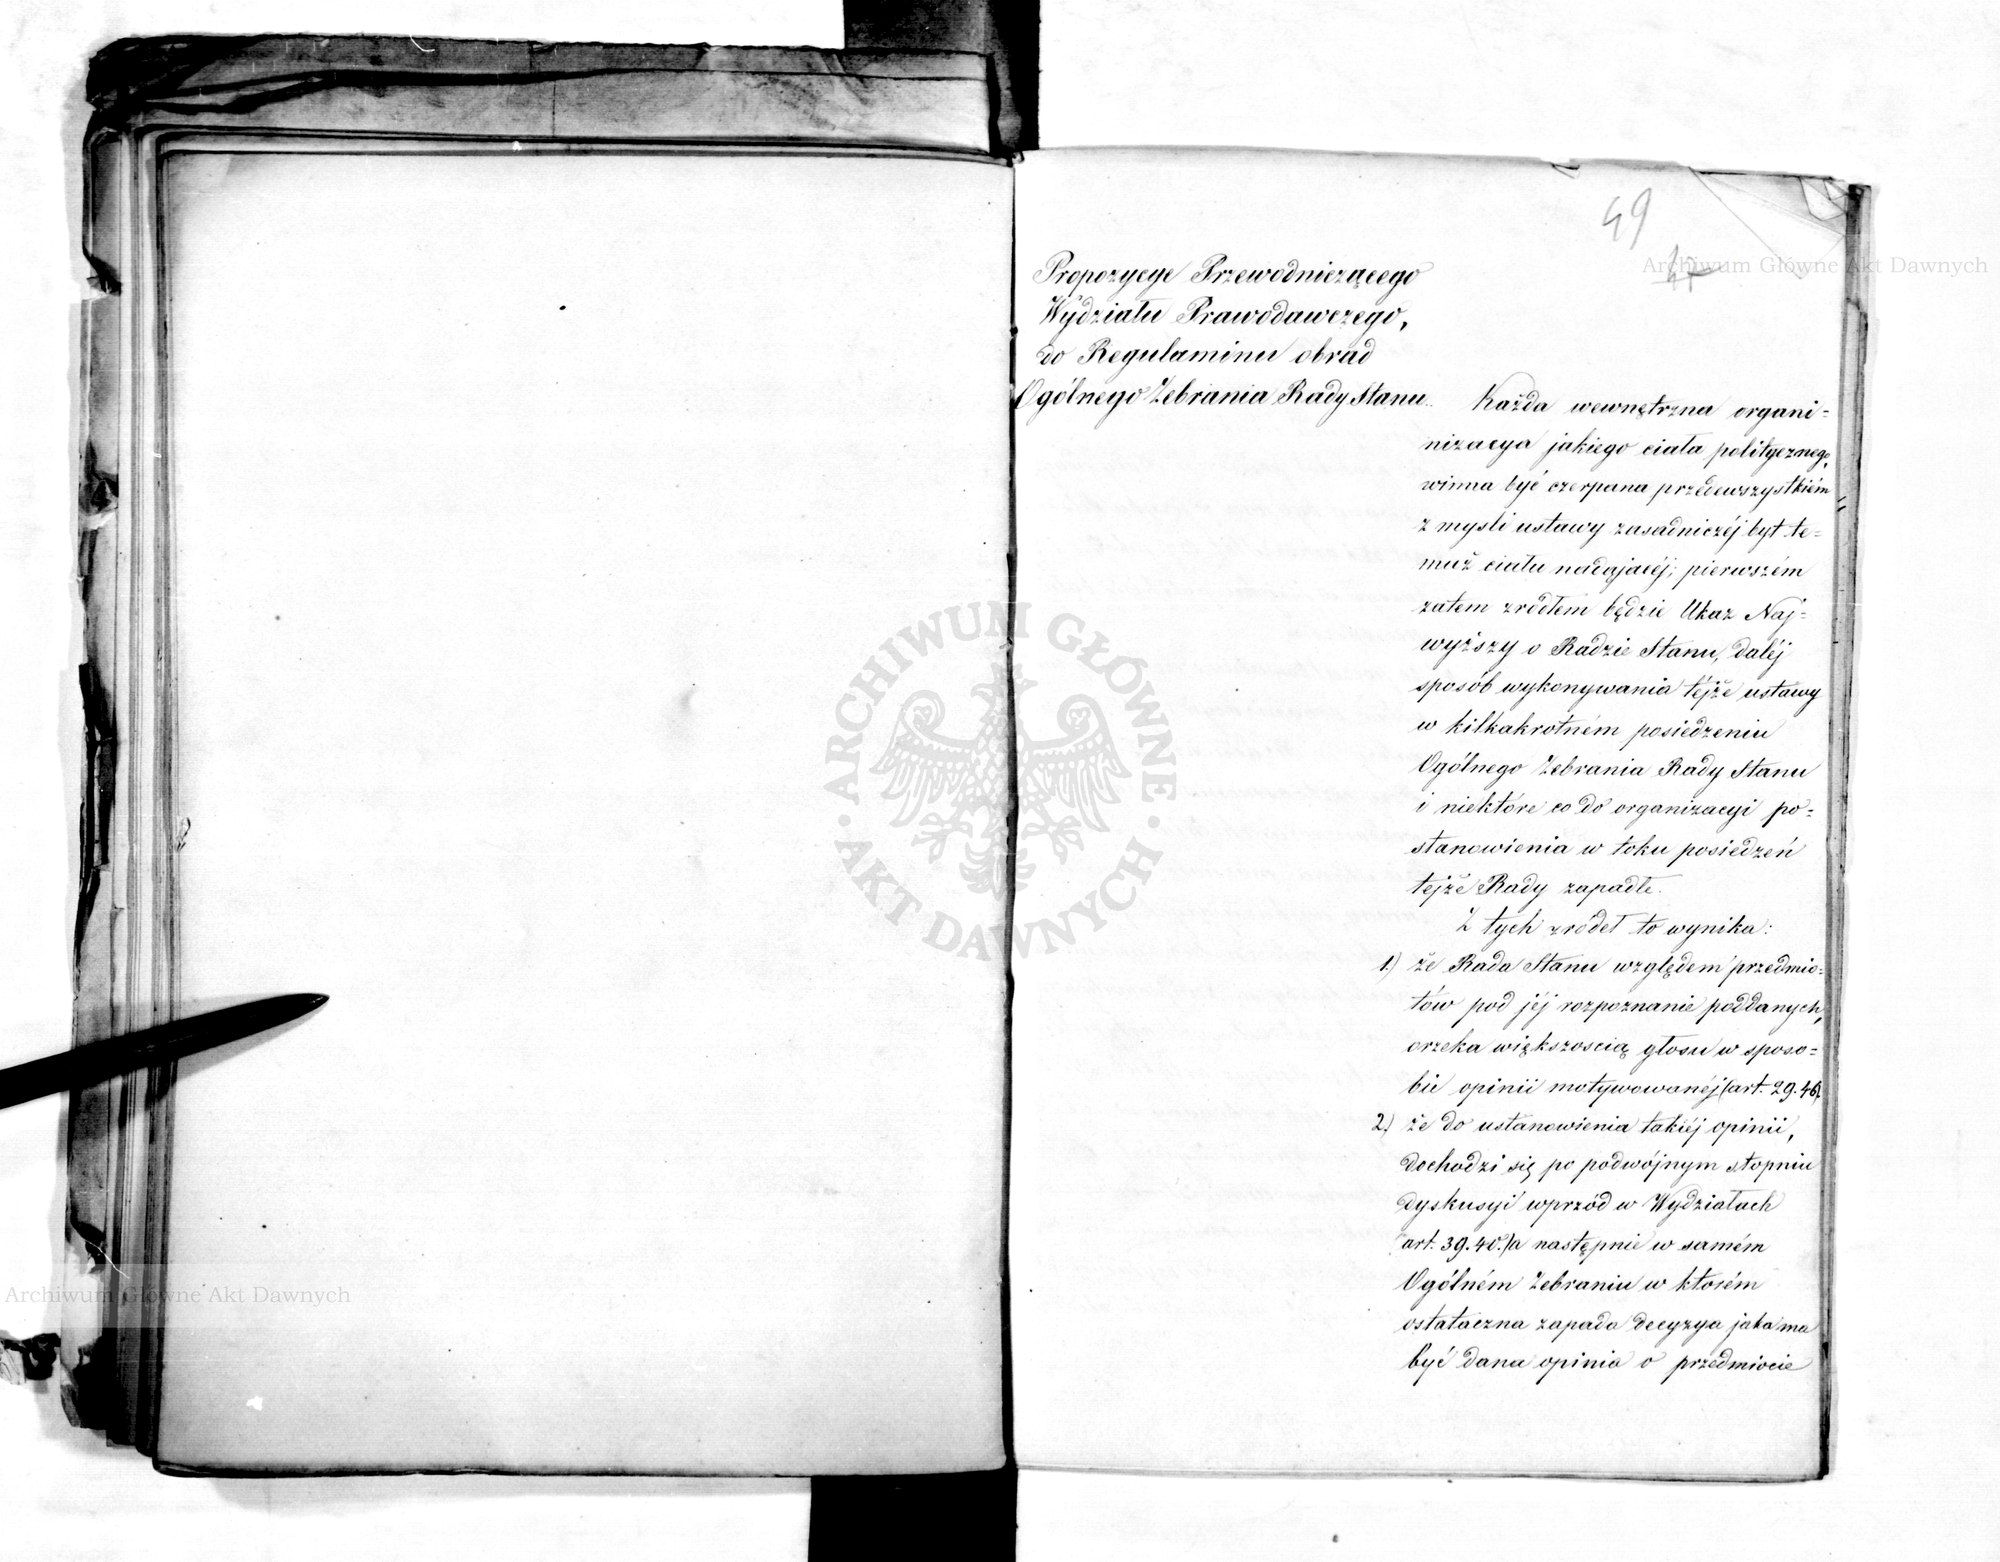 49
47
Propozycye Przewodniczącego
Wydziału Prawodawczego,
do Regulaminu obrad
Ogólnego Zebrania Rady Stanu.
Każda wewnętrzna organi-
nizacya jakiego ciała politycznego,
winna być czerpana przedewszystkiém
z mysli ustawy zasadniczéj byt te-
muż ciału nadającéj; pierwszém
zatem zrodłem będzie Ukaz Naj-
wyższy o Radzie Stanu, daléj
sposób wykonywania téjże ustawy
w kilkakrotném posiedzeniu
Ogólnego Zebrania Rady Stanu
i niektóre co do organizacyi po-
stanowienia w toku posiedzeń
tejże Rady zapadłe.
Z tych zrodeł to wynika:
1.) że Rada Stanu względem przedmio-
tów pod jéj rozpoznanie poddanych,
orzeka większoscią głosu w sposo-
bie opinii motywowanéj (art. 29. 46)
2.) że do ustanowienia takiéj opinii,
dochodzi się po podwójnym stopniu
dyskusyi wprzód w Wydziałach
(art. 39. 40.) a następnie w samém
Ogólném Zebraniu w ktorém
ostataczna zapada decyzya jaka ma
być dana opinia o przedmiocie
ARCHIWUM GŁÓWNE
AKT DAWNYCH
Archiwum Główne Akt Dawnych
Archiwum Główne Akt Dawnych